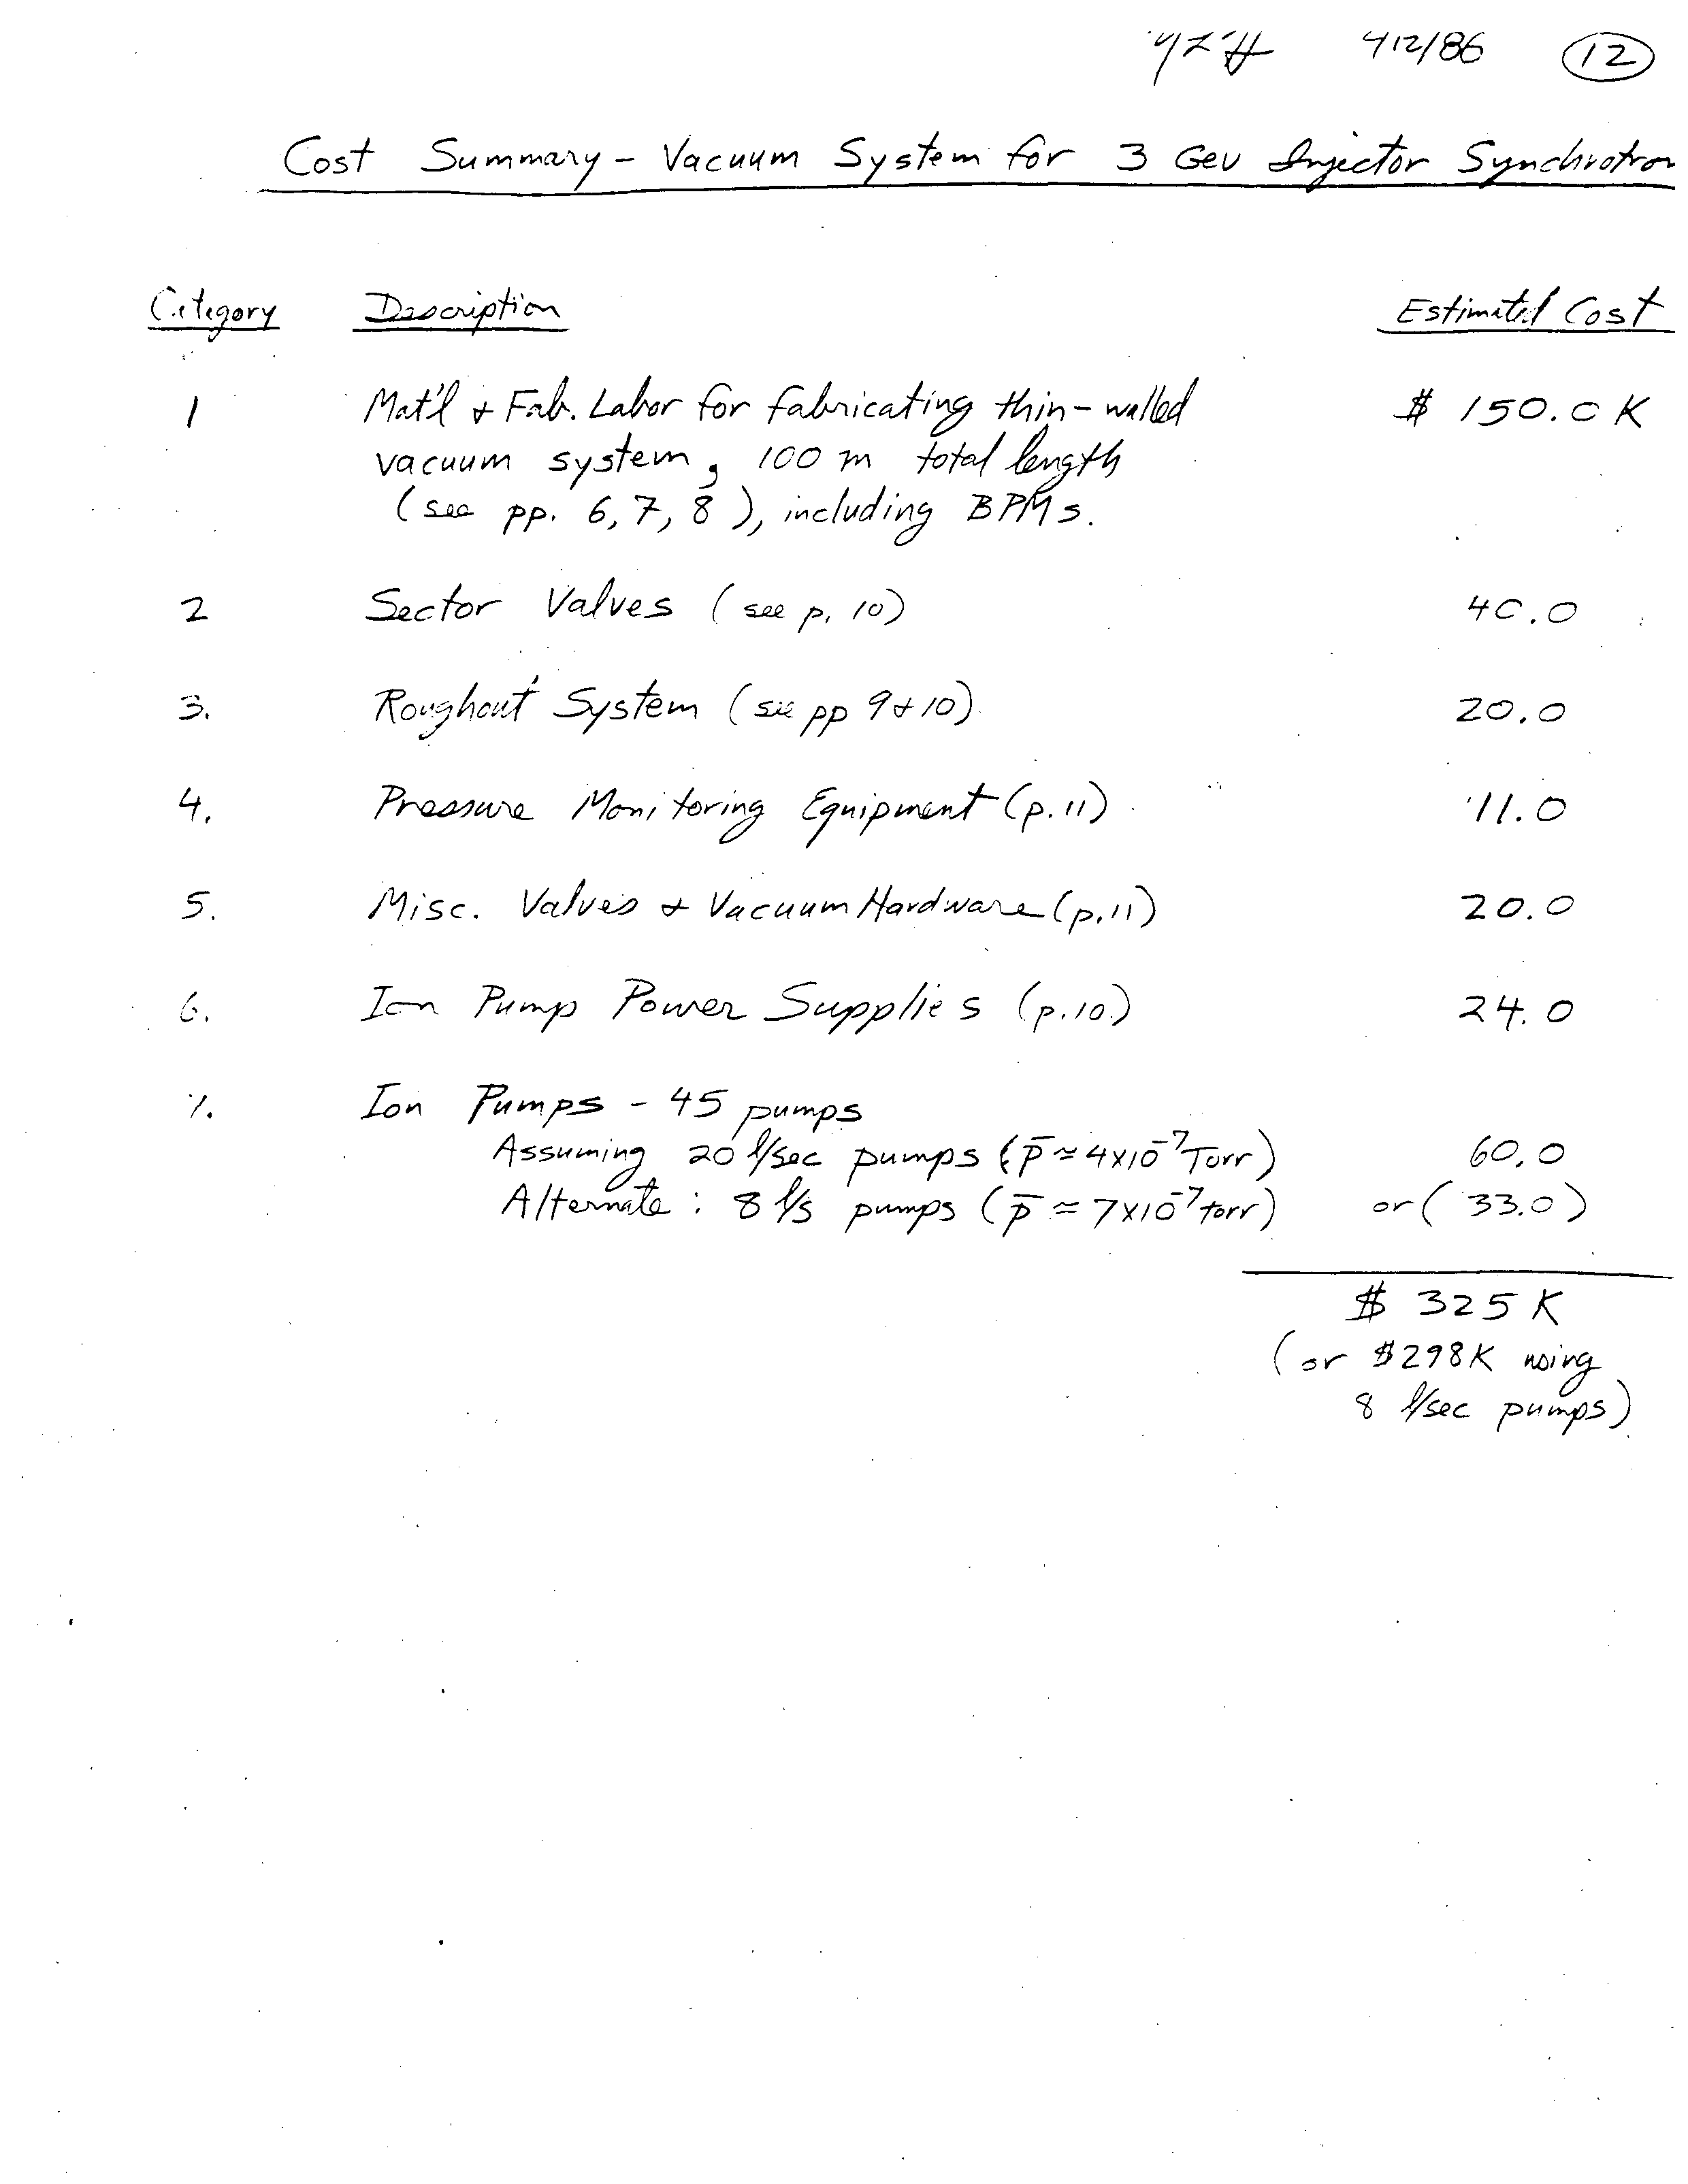 4/2/86 12
Cost Summary - Vacuum System for 3 GeV Injector Synchrotron
Category Description Estimated Cost
1 Mat'l & Fab. Labor for fabricating thin-walled $ 150.0 K
vacuum system, 100 m total length
(see pp. 6, 7, 8), including BPMs.
2 Sector Valves (see p. 10) 40.0
3. Roughout System (see pp 9 & 10) 20.0
4. Pressure Monitoring Equipment (p.11) 11.0
5. Misc. Valves & Vacuum Hardware (p.11) 20.0
6. Ion Pump Power Supplies (p.10.) 24.0
7. Ion Pumps - 45 pumps
Assuming 20 l/sec pumps (p̄ ≈ 4x10⁻⁷ Torr) 60.0
Alternate: 8 l/s pumps (p̄ ≈ 7x10⁻⁷ torr) or (33.0)
$ 325 K
(or $298K using
8 l/sec pumps)